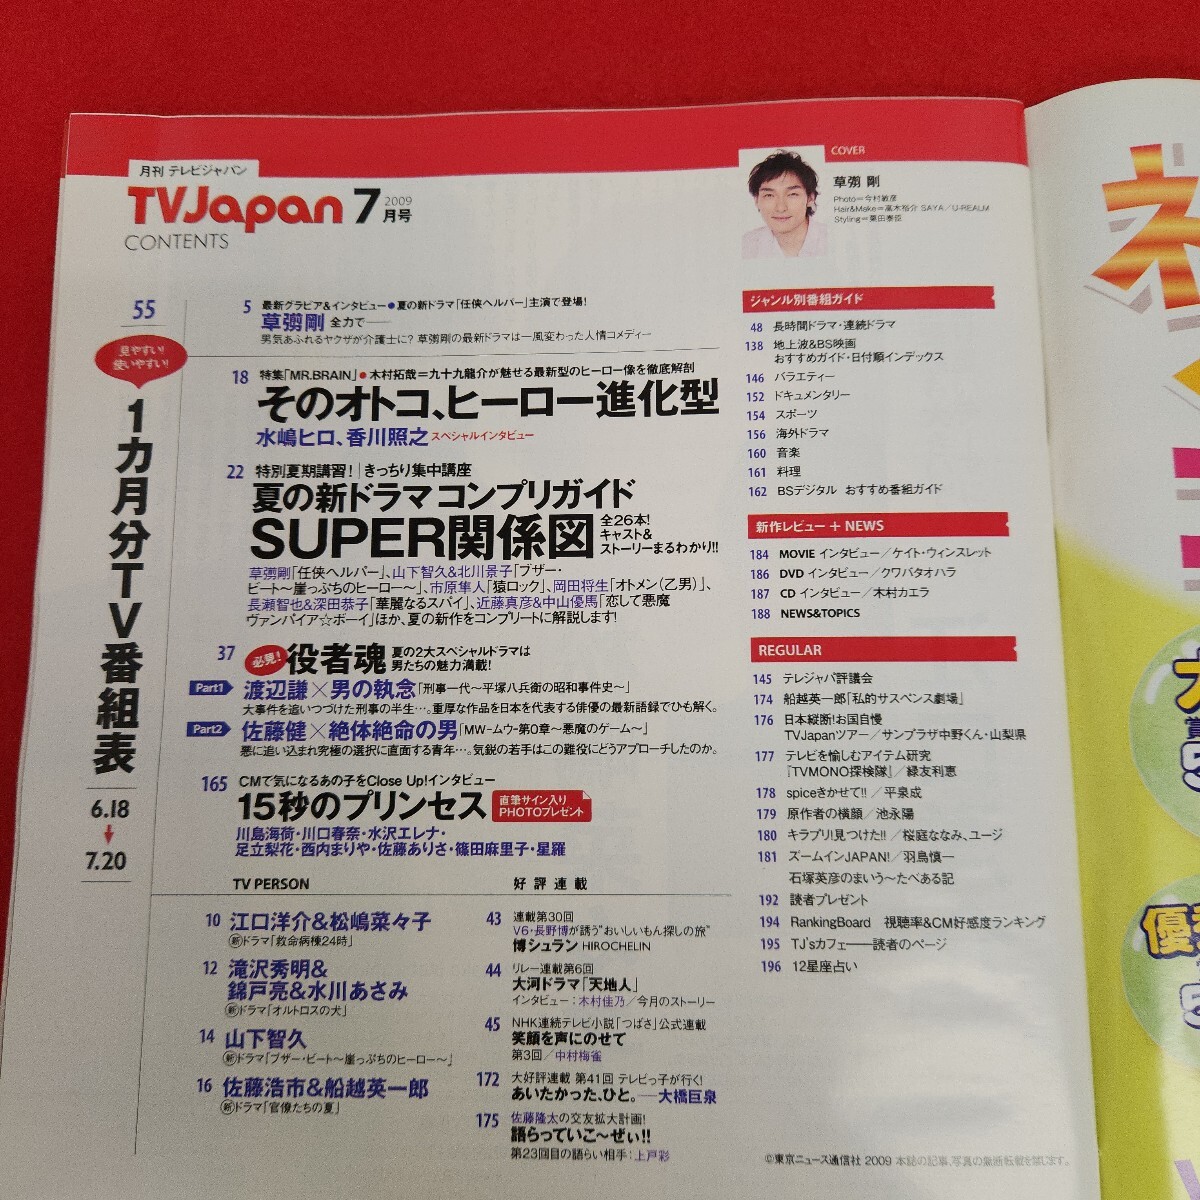 月刊 テレビジャパン
TVJapan 7月号
2009
CONTENTS
COVER
草彅 剛
Photo＝今村敏彦
Hair&Make＝高木裕介 SAYA／U-REALM
Styling＝栗田泰臣
55
見やすい!
使いやすい!
1カ月分TV番組表
6.18
7.20
5 最新グラビア&インタビュー●夏の新ドラマ「任侠ヘルパー」主演で登場!
草彅剛 全力で——
男気あふれるヤクザが介護士に? 草彅剛の最新ドラマは一風変わった人情コメディー
18 特集「MR.BRAIN」●木村拓哉＝九十九龍介が魅せる最新型のヒーロー像を徹底解剖
そのオトコ、ヒーロー進化型
水嶋ヒロ、香川照之 スペシャルインタビュー
22 特別夏期講習! きっちり集中講座
夏の新ドラマコンプリガイド
SUPER関係図
全26本!
キャスト&
ストーリーまるわかり!!
草彅剛「任侠ヘルパー」、山下智久&北川景子「ブザー・
ビート〜崖っぷちのヒーロー〜」、市原隼人「猿ロック」、岡田将生「オトメン(乙男)」、
長瀬智也&深田恭子「華麗なるスパイ」、近藤真彦&中山優馬「恋して悪魔
ヴァンパイア☆ボーイ」ほか、夏の新作をコンプリートに解説します!
37 必見! 役者魂
夏の2大スペシャルドラマは
男たちの魅力満載!
Part1 渡辺謙×男の執念「刑事一代〜平塚八兵衛の昭和事件史〜」
大事件を追いつづけた刑事の半生…。重厚な作品を日本を代表する俳優の最新語録でひも解く。
Part2 佐藤健×絶体絶命の男「MW-ムウ-第0章〜悪魔のゲーム〜」
悪に追い込まれ究極の選択に直面する青年…。気鋭の若手はこの難役にどうアプローチしたのか。
165 CMで気になるあの子をClose Up!インタビュー
15秒のプリンセス
直筆サイン入り
PHOTOプレゼント
川島海荷・川口春奈・水沢エレナ・
足立梨花・西内まりや・佐藤ありさ・篠田麻里子・星羅
TV PERSON
10 江口洋介&松嶋菜々子
新ドラマ「救命病棟24時」
12 滝沢秀明&
錦戸亮&水川あさみ
新ドラマ「オルトロスの犬」
14 山下智久
新ドラマ「ブザー・ビート〜崖っぷちのヒーロー〜」
16 佐藤浩市&船越英一郎
新ドラマ「官僚たちの夏」
好評連載
43 連載第30回
V6・長野博が誘う"おいしいもん探しの旅"
博シュラン HIROCHELIN
44 リレー連載第6回
大河ドラマ「天地人」
インタビュー：木村佳乃／今月のストーリー
45 NHK連続テレビ小説「つばさ」公式連載
笑顔を声にのせて
第3回／中村梅雀
172 大好評連載 第41回 テレビっ子が行く!
あいたかった、ひと。——大橋巨泉
175 佐藤隆太の交友拡大計画!
語らっていこ〜ぜぃ!!
第23回目の語らい相手：上戸彩
ジャンル別番組ガイド
48 長時間ドラマ・連続ドラマ
138 地上波&BS映画
おすすめガイド・日付順インデックス
146 バラエティー
152 ドキュメンタリー
154 スポーツ
156 海外ドラマ
160 音楽
161 料理
162 BSデジタル おすすめ番組ガイド
新作レビュー + NEWS
184 MOVIE インタビュー／ケイト・ウィンスレット
186 DVD インタビュー／クワバタオハラ
187 CD インタビュー／木村カエラ
188 NEWS&TOPICS
REGULAR
145 テレジャパ評議会
174 船越英一郎「私的サスペンス劇場」
176 日本縦断!お国自慢
TVJapanツアー／サンプラザ中野くん・山梨県
177 テレビを愉しむアイテム研究
『TVMONO探検隊』／緑友利恵
178 spiceきかせて!!／平泉成
179 原作者の横顔／池永陽
180 キラプリ!見つけた!!／桜庭ななみ、ユージ
181 ズームインJAPAN!／羽鳥慎一
石塚英彦のまいう〜たべある記
192 読者プレゼント
194 RankingBoard 視聴率&CM好感度ランキング
195 TJ'sカフェ——読者のページ
196 12星座占い
©東京ニュース通信社 2009 本誌の記事、写真の無断転載を禁じます。